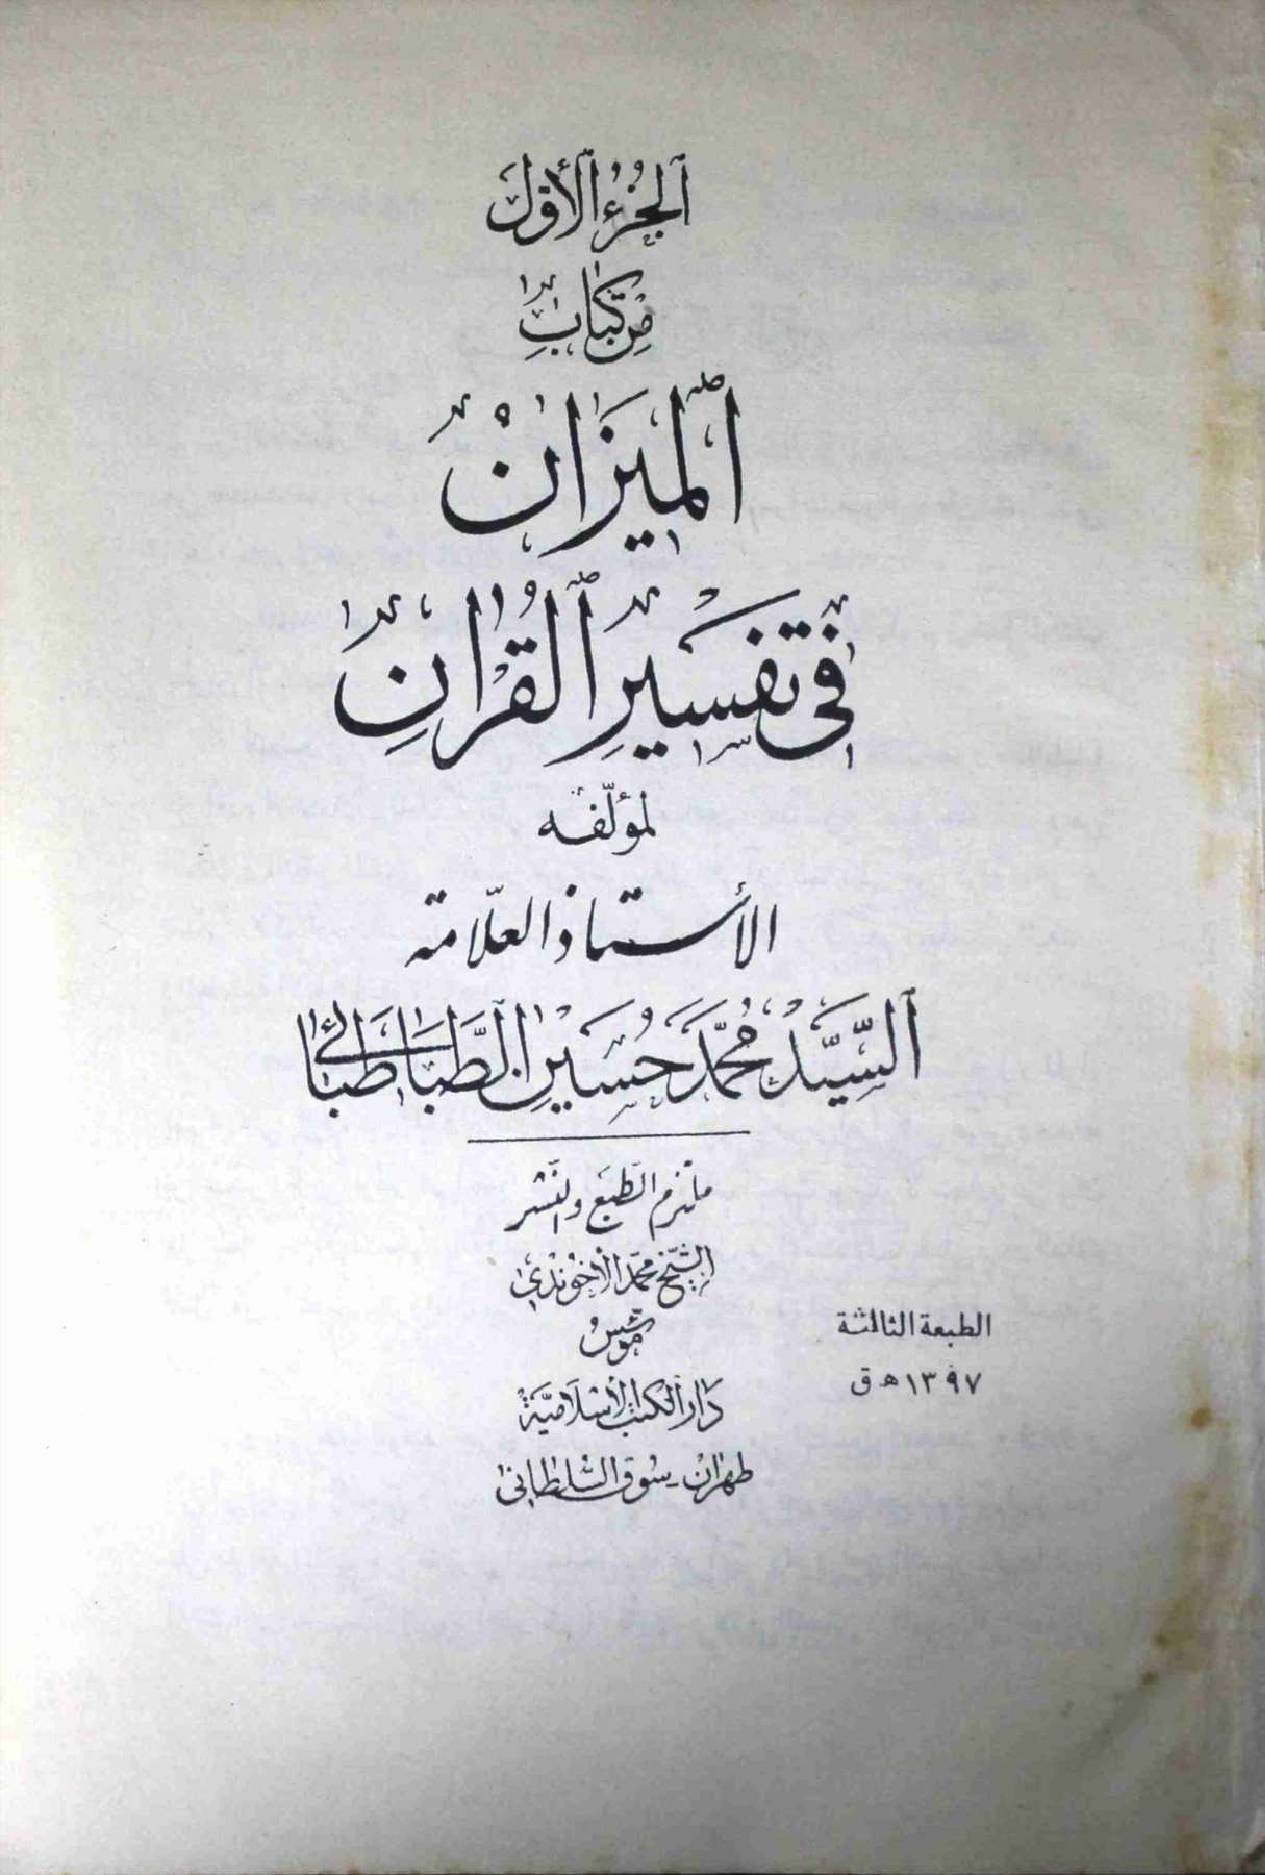 الجُزءُ الأوّل
مِن كتابِ
الميزانْ
في تفسيرِ القُرانِ
لمؤلّفه
الأستاذ العلّامة
السَّيِّدْ مُحمَّدَ حُسَينِ الطَّبَاطَبَائي
ملتزم الطّبع والنّشر
الشّيخ محمّد الآخوُندي
مؤسّس
دَارُ الكتب الأسلاميَّة
طهران - سوق السّلطاني
الطبعة الثالثة
١٣٩٧ ه ق